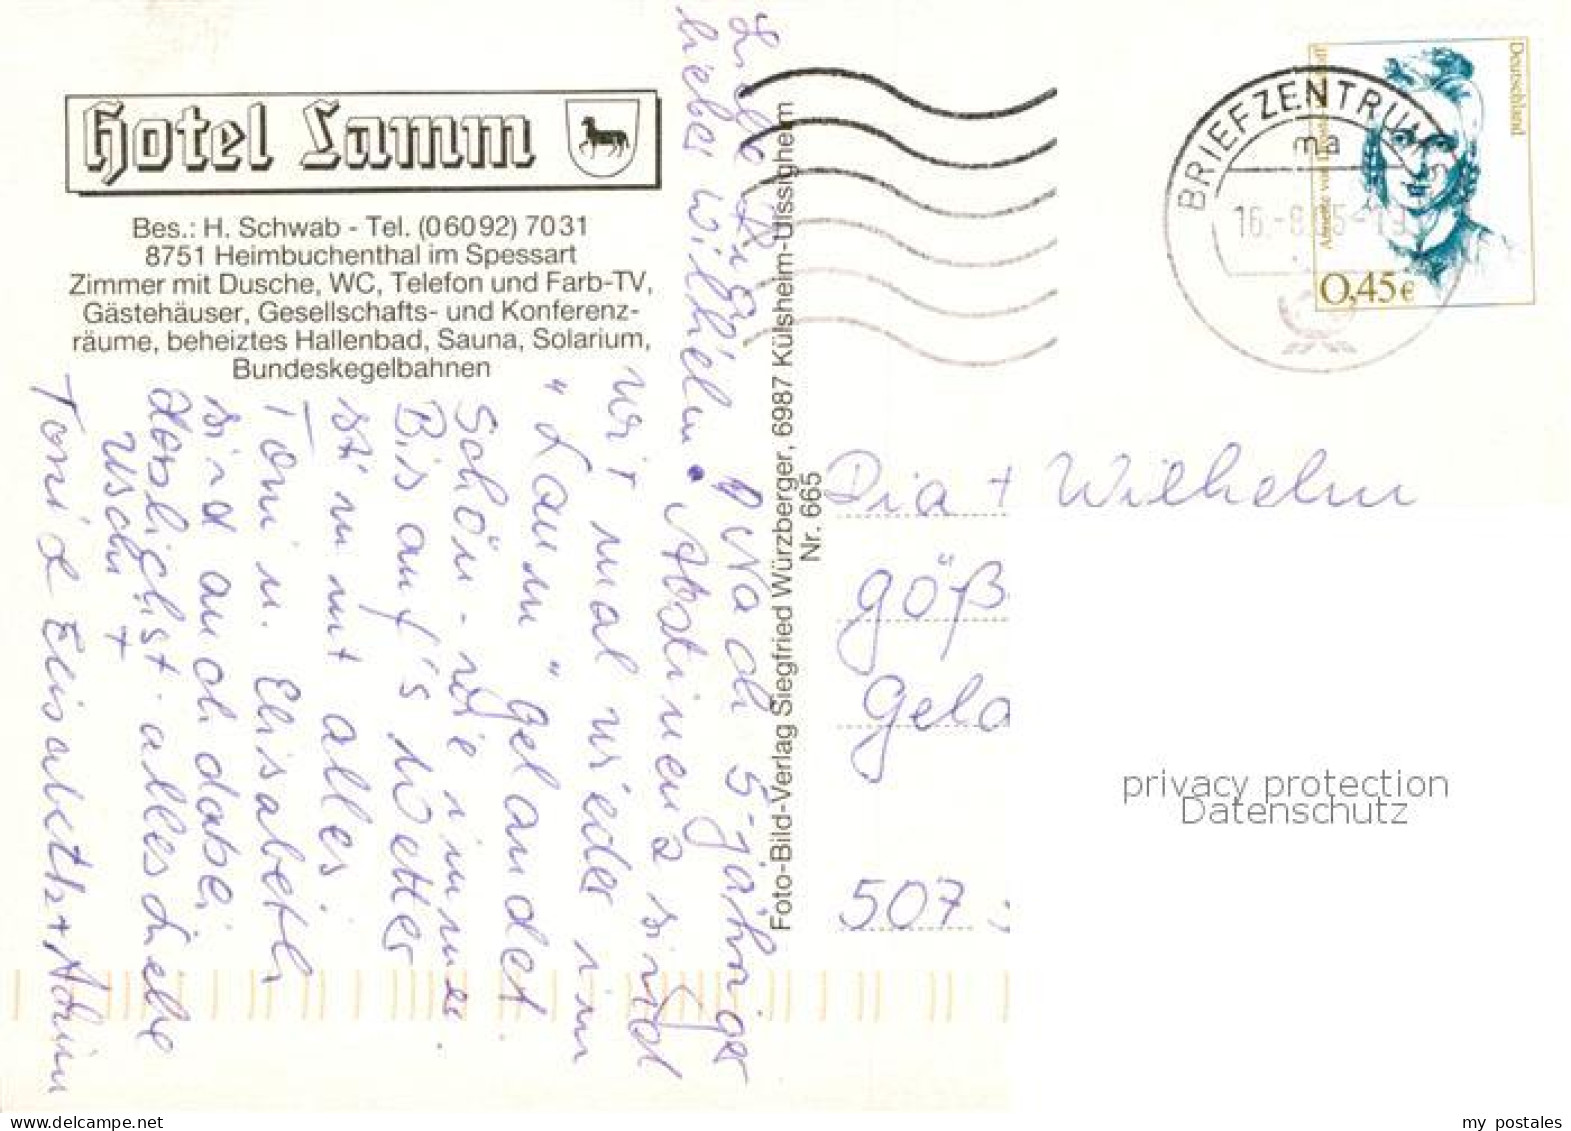 Hotel Lamm
Bes.: H. Schwab - Tel. (06092) 7031
8751 Heimbuchenthal im Spessart
Zimmer mit Dusche, WC, Telefon und Farb-TV,
Gästehäuser, Gesellschafts- und Konferenz-
räume, beheiztes Hallenbad, Sauna, Solarium,
Bundeskegelbahnen
Liebe Dia,
lieber Wilhelm.
Nach 5-jähriger
Abstinenz sind
wir mal wieder im
"Lamm" gelandet.
Schön - wie immer.
Bis auf's Wetter
stimmt alles.
Toni u. Elisabeth
sind auch dabei
Herzlichst alles Liebe
Uschi +
Toni & Elisabeth + Achim
Foto-Bild-Verlag Siegfried Würzberger, 6987 Külsheim-Uissigheim
Nr. 665
BRIEFZENTRUM
ma
16.-8.05-19
Deutschland
Annette von Droste-Hülshoff
0,45 €
Dia + Wilhelm
Göß
507
privacy protection
Datenschutz
my postales